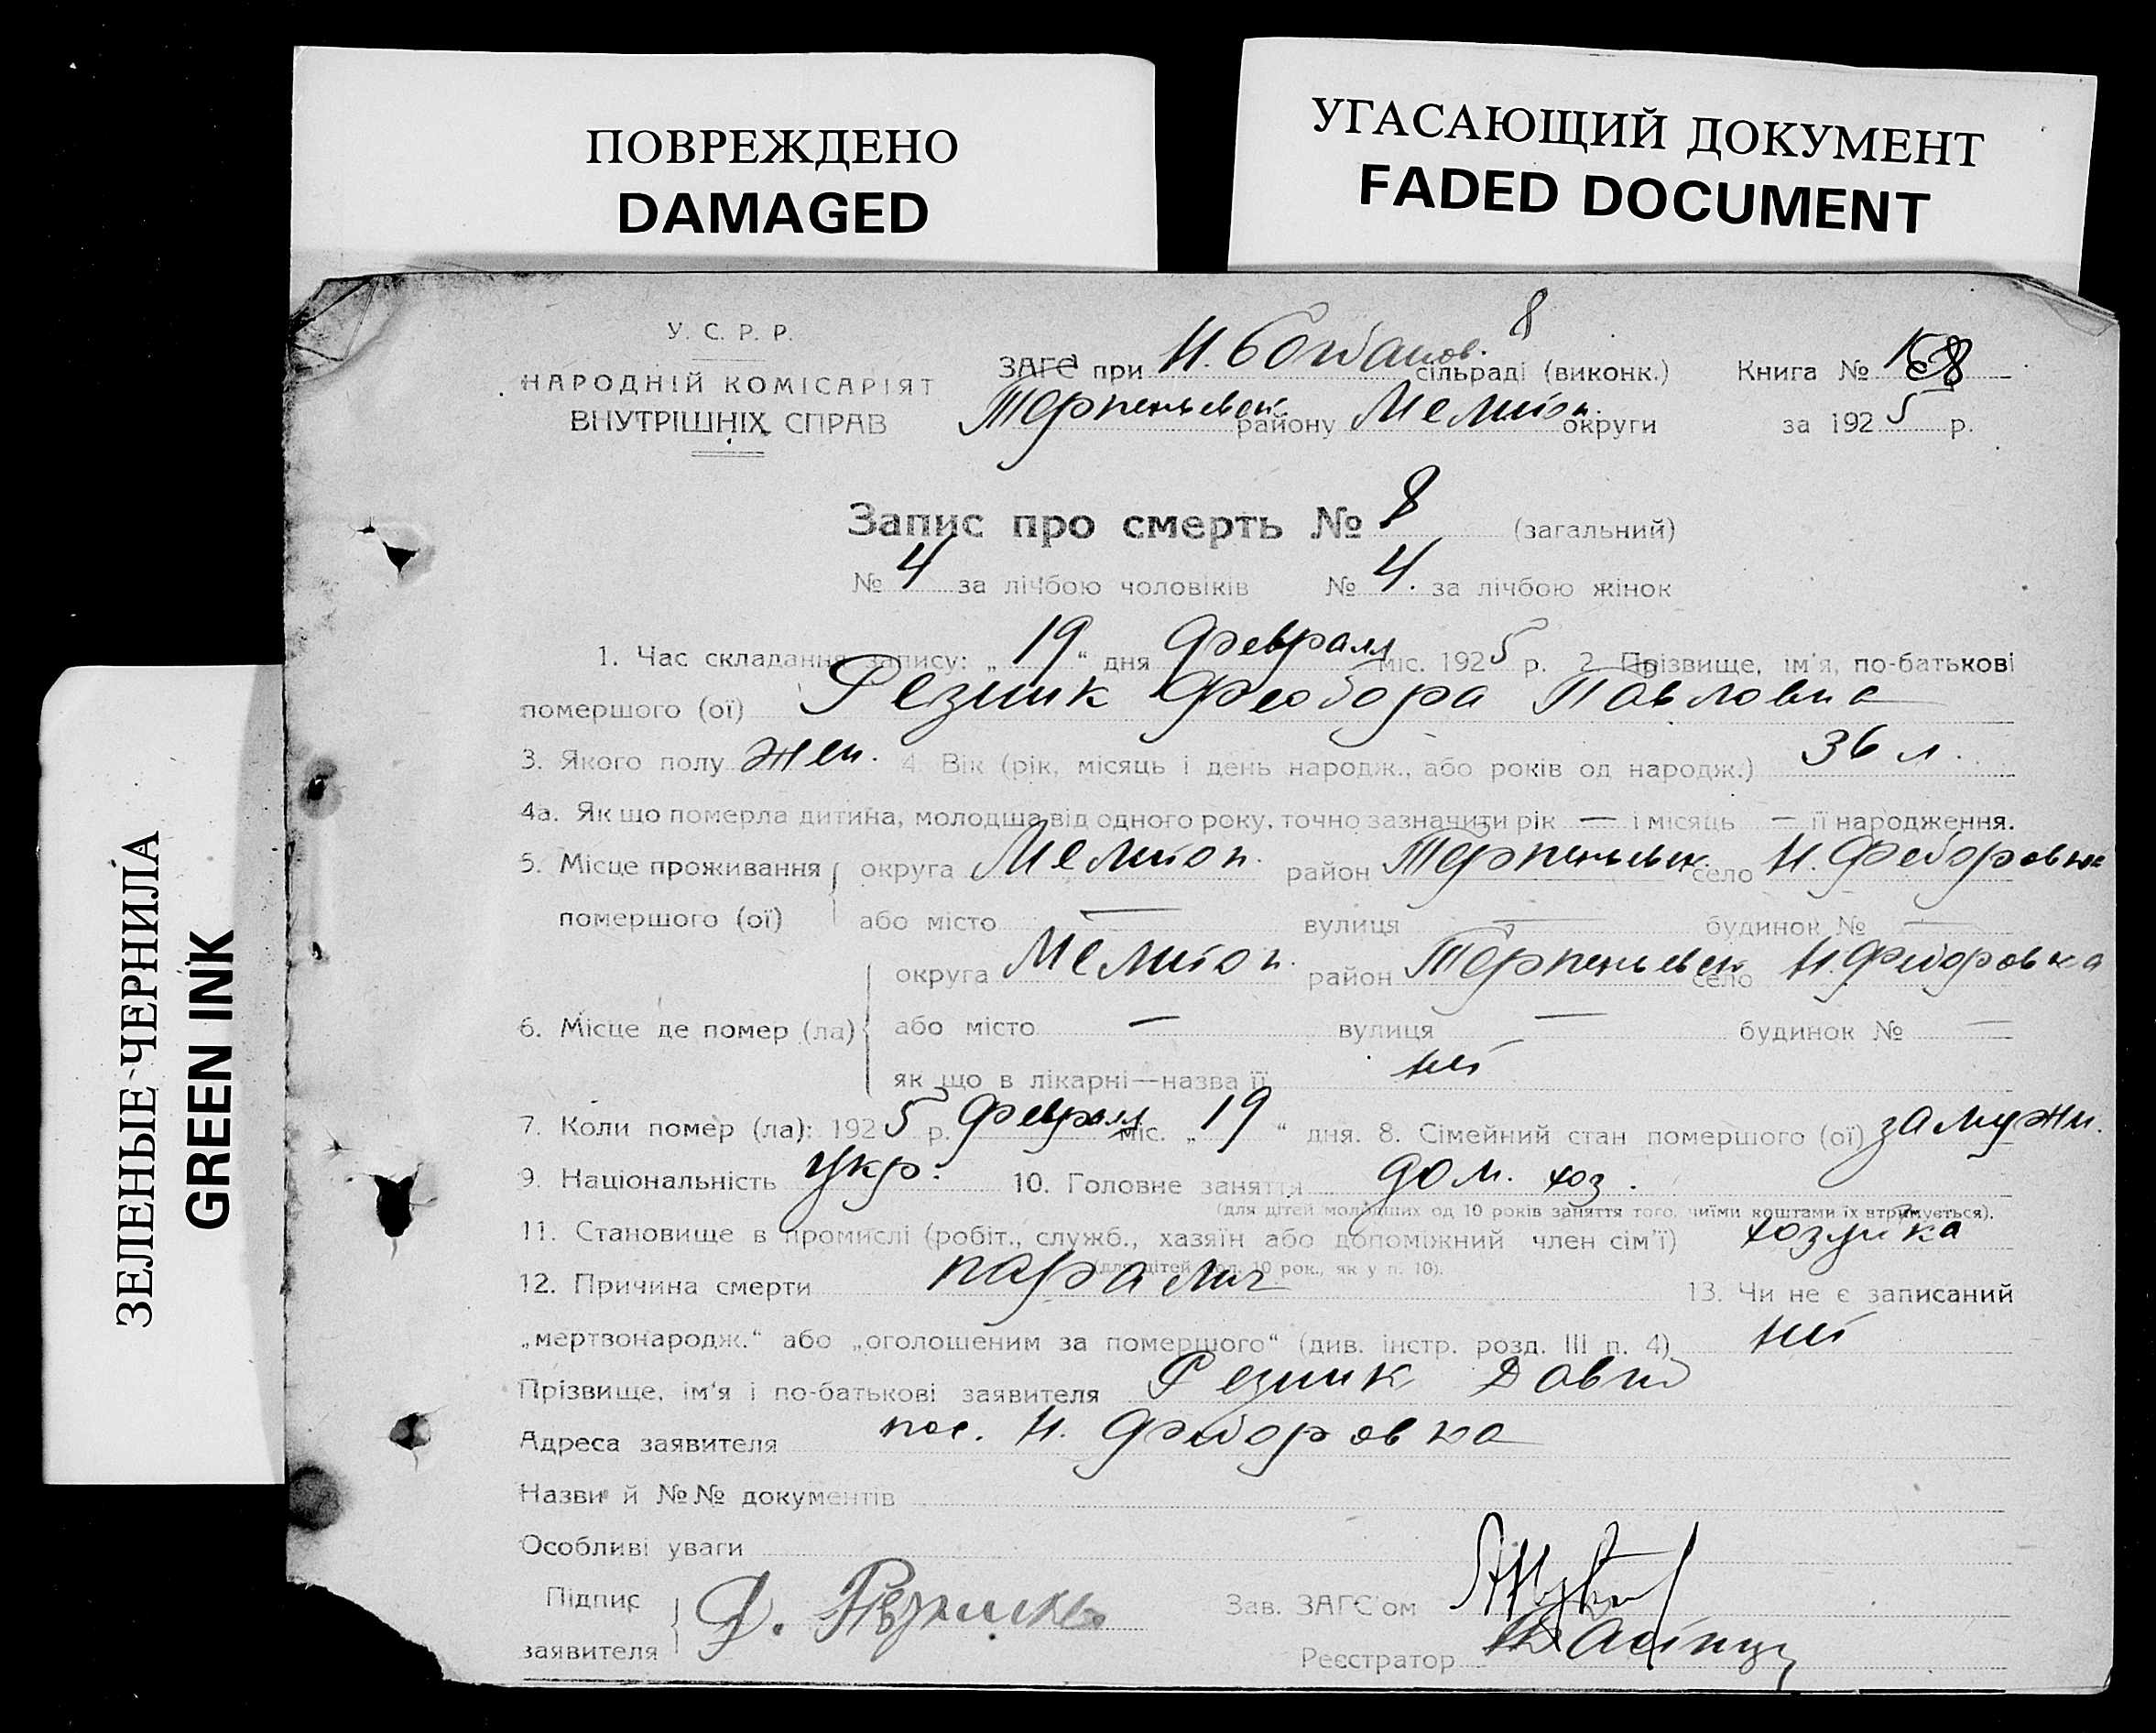 ПОВРЕЖДЕНО
DAMAGED
УГАСАЮЩИЙ ДОКУМЕНТ
FADED DOCUMENT
ЗЕЛЕНЫЕ ЧЕРНИЛА
GREEN INK
8
У. С. Р. Р.
НАРОДНІЙ КОМІСАРІЯТ
ВНУТРІШНІХ СПРАВ
ЗАГС при Н. Богданов. сільраді (виконк.)
Терпеньевск. району Мелитоп. округи
Книга №
за 1925 р.
Запис про смерть № 8 (загальний)
№ 4 за лічбою чоловіків № 4. за лічбою жінок
1. Час складання запису: „19“ дня февраля міс. 1925 р. 2. Прізвище, ім'я, по-батькові
помершого (ої) Резник Феодора Павловна
3. Якого полу жен. 4. Вік (рік, місяць і день народж., або років од народж.) 36 л.
4а. Як що померла дитина, молодша від одного року, точно зазначити рік — і місяць — її народження.
5. Місце проживання округа Мелитоп. район Терпеньевск. село Н. Федоровка
помершого (ої) або місто — вулиця — будинок № —
округа Мелитоп. район Терпеньевск село Н. Федоровка
6. Місце де помер (ла) або місто — вулиця — будинок № —
як що в лікарні—назва її нет
7. Коли помер (ла): 1925 р. февраля міс. „19“ дня. 8. Сімейний стан помершого (ої) замужн.
9. Національність укр. 10. Головне заняття дом. хоз.
(для дітей молодших од 10 років заняття того, чиїми коштами їх втримується).
11. Становище в промислі (робіт., служб., хазяїн або допоміжний член сім'ї) хозяйка
(для дітей мол. 10 рок., як у п. 10).
12. Причина смерти паралич 13. Чи не є записаний
„мертвонародж.“ або „оголошеним за помершого“ (див. інстр. розд. III п. 4) нет
Прізвище, ім'я і по-батькові заявителя Резник Давид
Адреса заявителя пос. Н. Федоровка
Назви й №№ документів
Особливі уваги
Підпис
заявителя Д. Резник
Зав. ЗАГС'ом
Реєстратор